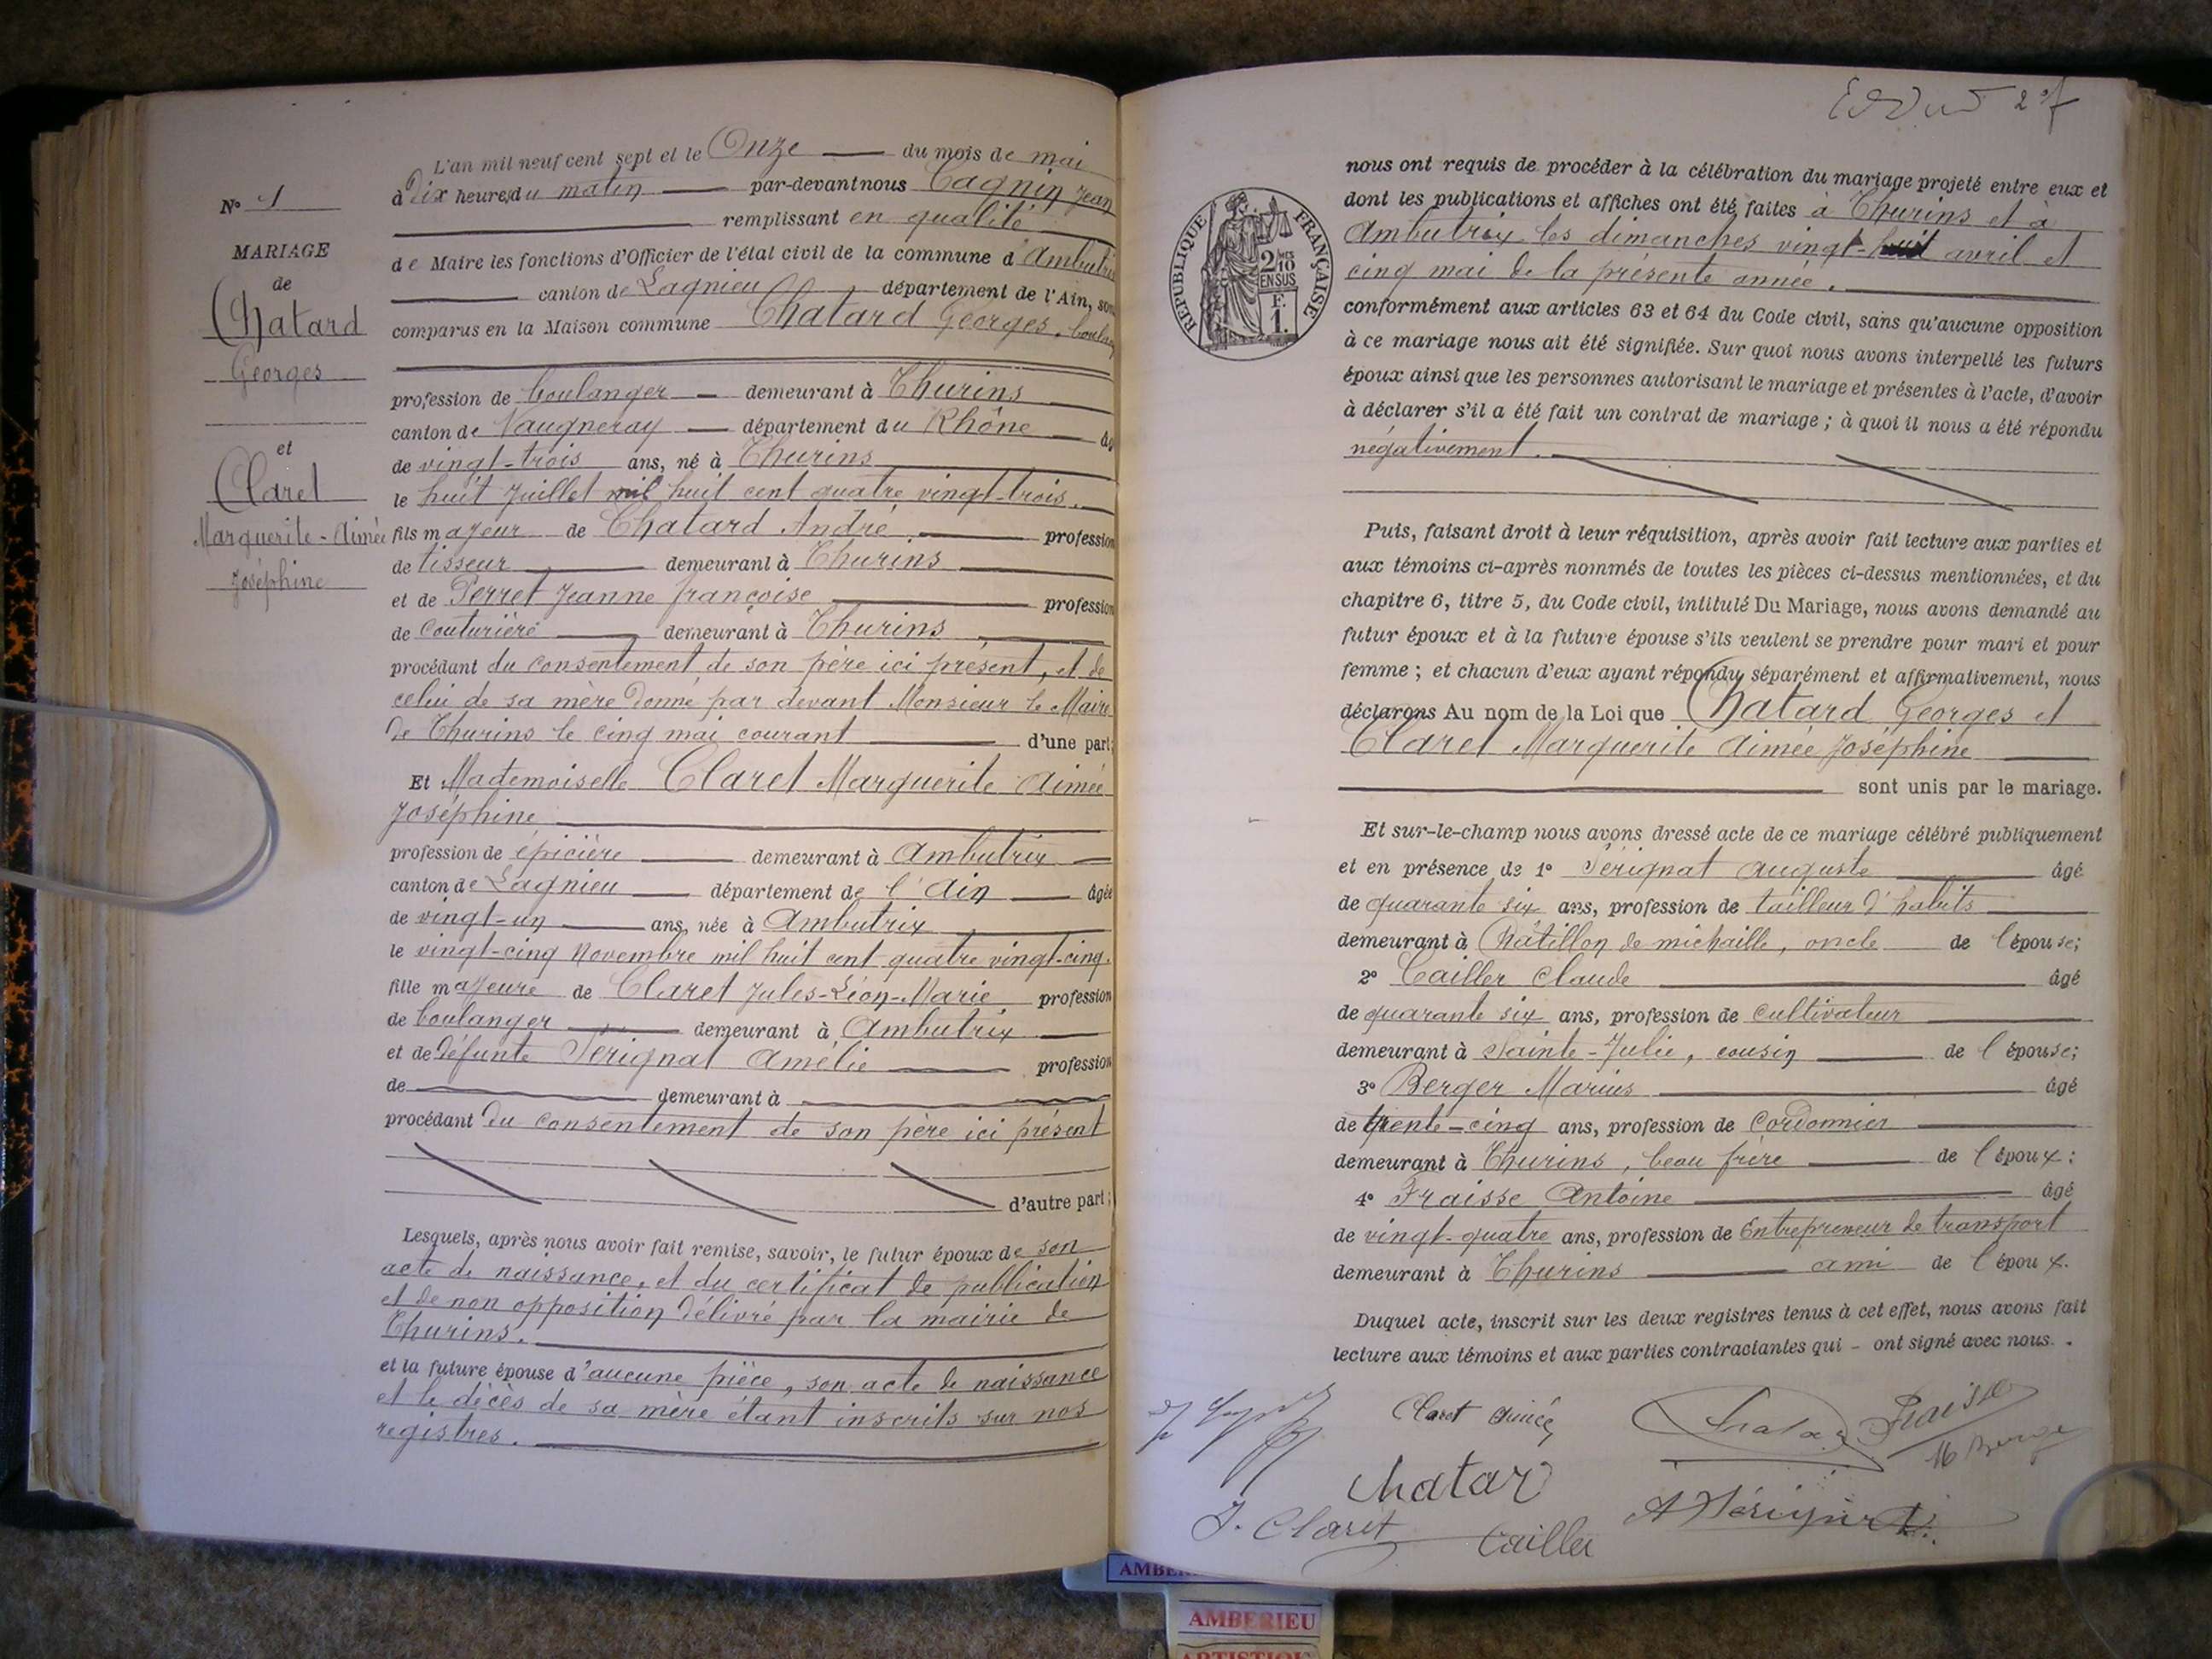 N° 1
MARIAGE
de
Chatard
Georges
et
Claret
Marguerite-Aimée
Joséphine
L'an mil neuf cent sept et le Onze du mois de mai
à Dix heures du matin par-devant nous Cagnin Jean
remplissant en qualité
de Maire les fonctions d'Officier de l'état civil de la commune d'Ambutrix
canton de Lagnieu département de l'Ain, sont
comparus en la Maison commune Chatard Georges, boulan
profession de boulanger demeurant à Thurins
canton de Vaugneray département du Rhône âgé
de vingt-trois ans, né à Thurins
le huit Juillet mil huit cent quatre vingt-trois.
fils majeur de Chatard André profession
de tisseur demeurant à Thurins
et de Perret Jeanne françoise profession
de Couturière demeurant à Thurins
procédant du consentement de son père ici présent, et de
celui de sa mère donné par devant Monsieur le Maire
de Thurins le cinq mai courant d'une part;
Et Mademoiselle Claret Marguerite Aimée
Joséphine
profession de épicière demeurant à Ambutrix
canton de Lagnieu département de l'Ain âgée
de vingt-un ans, née à Ambutrix
le vingt-cinq Novembre mil huit cent quatre vingt-cinq.
fille majeure de Claret Jules-Léon-Marie profession
de boulanger demeurant à Ambutrix
et de défunte Sérignat Amélie profession
de demeurant à
procédant du consentement de son père ici présent
d'autre part;
Lesquels, après nous avoir fait remise, savoir, le futur époux de son
acte de naissance, et du certificat de publication
et de non opposition délivré par la mairie de
Thurins.
et la future épouse d'aucune pièce, son acte de naissance
et le décès de sa mère étant inscrits sur nos
registres.
RÉPUBLIQUE FRANÇAISE
2/10 EN SUS
F.
1.
nous ont requis de procéder à la célébration du mariage projeté entre eux et
dont les publications et affiches ont été faites à Thurins et à
Ambutrix les dimanches vingt-huit avril et
cinq mai de la présente année.
conformément aux articles 63 et 64 du Code civil, sans qu'aucune opposition
à ce mariage nous ait été signifiée. Sur quoi nous avons interpellé les futurs
époux ainsi que les personnes autorisant le mariage et présentes à l'acte, d'avoir
à déclarer s'il a été fait un contrat de mariage ; à quoi il nous a été répondu
négativement.
Puis, faisant droit à leur réquisition, après avoir fait lecture aux parties et
aux témoins ci-après nommés de toutes les pièces ci-dessus mentionnées, et du
chapitre 6, titre 5, du Code civil, intitulé Du Mariage, nous avons demandé au
futur époux et à la future épouse s'ils veulent se prendre pour mari et pour
femme ; et chacun d'eux ayant répondu séparément et affirmativement, nous
déclarons Au nom de la Loi que Chatard Georges et
Claret Marguerite Aimée Joséphine
sont unis par le mariage.
Et sur-le-champ nous avons dressé acte de ce mariage célébré publiquement
et en présence de 1° Sérignat Auguste âgé
de quarante six ans, profession de tailleur d'habits
demeurant à Châtillon de michaille, oncle de l'épouse;
2° Cailler Claude âgé
de quarante six ans, profession de cultivateur
demeurant à Sainte-Julie, cousin de l'épouse;
3° Berger Marius âgé
de trente-cinq ans, profession de Cordonnier
demeurant à Thurins, beau frère de l'époux;
4° Fraisse Antoine âgé
de vingt-quatre ans, profession de Entrepreneur de transport
demeurant à Thurins ami de l'époux.
Duquel acte, inscrit sur les deux registres tenus à cet effet, nous avons fait
lecture aux témoins et aux parties contractantes qui - ont signé avec nous.
Claret Aimée
Fraisse
M Berger
Chatard
J. Claret
Cailler
A Sérignat
AMBERIEU